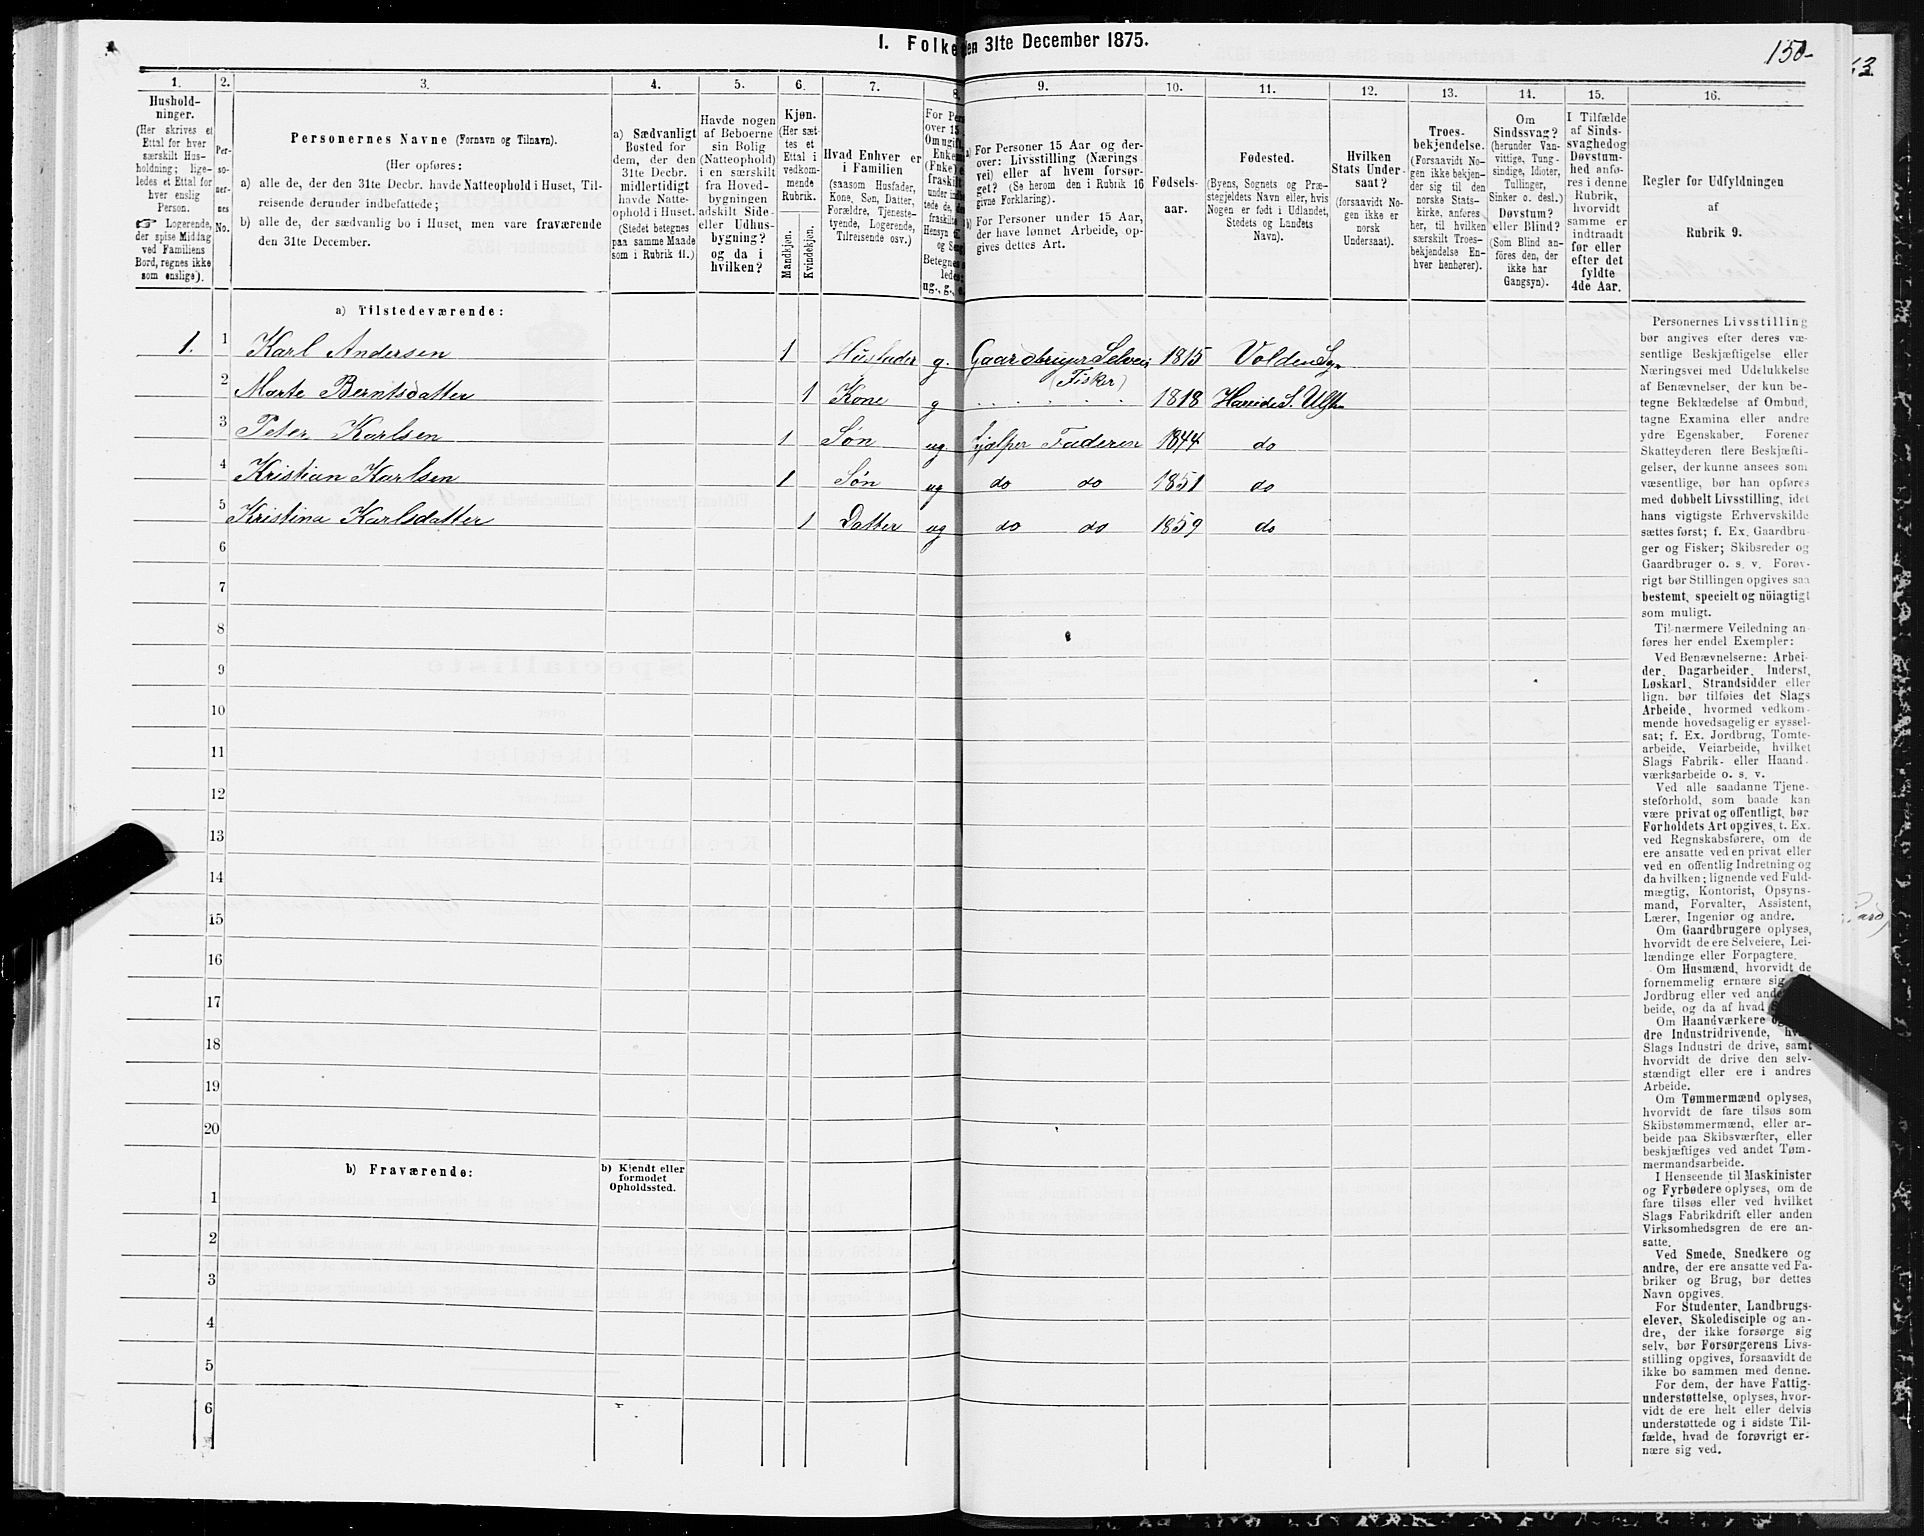 1. Folke en 31te December 1875.
150
1.
Hushold-
ninger.
(Her skrives et
Ettal for hver
særskilt Hus-
holdning; lige-
ledes et Ettal for
hver enslig
Person.
☞ Logerende,
der spise Middag
ved Familiens
Bord, regnes ikke
som enslige).
2.
Per-
so-
ner-
nes
No.
3.
Personernes Navne (Fornavn og Tilnavn).
(Her opføres:
a) alle de, der den 31te Decbr. havde Natteophold i Huset, Til-
reisende derunder indbefattede;
b) alle de, der sædvanlig bo i Huset, men vare fraværende
den 31te December.
4.
a) Sædvanligt
Bosted for
dem, der den
31te Decbr.
midlertidigt
havde Natte-
ophold i Huset.
(Stedet betegnes
paa samme Maade
som i Rubrik 11.)
5.
Havde nogen
af Beboerne
sin Bolig
(Natteophold)
i en særskilt
fra Hoved-
bygningen
adskilt Side-
eller Udhus-
bygning?
og da i
hvilken?
6.
Kjøn.
(Her sæt-
tes et
Ettal i
vedkom-
mende
Rubrik.
Mandkjøn.
Kvindekjøn.
7.
Hvad Enhver er
i Familien
(saasom Husfader,
Kone, Søn, Datter,
Forældre, Tjeneste-
tyende, Logerende,
Tilreisende osv.)
8.
For Pers
over 15
Om ugift,
Enkem
(Enke) e
fraskilt
under indbe
tede de,
fraskilte
Hensyn til
og Seng
Betegnes s
ledes:
ug., g., e.
9.
a) For Personer 15 Aar og der-
over: Livsstilling (Nærings-
vei) eller af hvem forsør-
get? (Se herom den i Rubrik 16
givne Forklaring).
b) For Personer under 15 Aar,
der have lønnet Arbeide, op-
gives dettes Art.
10.
Fødsels-
aar.
11.
Fødested.
(Byens, Sognets og Præ-
stegjeldets Navn eller, hvis
Nogen er født i Udlandet,
Stedets og Landets
Navn).
12.
Hvilken
Stats Under-
saat?
(forsaavidt No-
gen ikke er
norsk
Undersaat).
13.
Troes-
bekjendelse.
(Forsaavidt No-
gen ikke bekjen-
der sig til den
norske Stats-
kirke, anføres
her, til hvilken
særskilt Troes-
bekjendelse En-
hver henhører).
14.
Om
Sindssvag?
(herunder Van-
vittige, Tung-
sindige, Idioter,
Tullinger,
Sinker o. desl.)
Døvstum?
eller Blind?
(Som Blind an-
føres den, der
ikke har
Gangsyn).
15.
I Tilfælde
af Sinds-
svaghed og
Døvstum-
hed anfø-
res i denne
Rubrik,
hvorvidt
samme er
indtraadt
før eller
efter det
fyldte
4de Aar.
16.
Regler for Udfyldningen
af
Rubrik 9.
a) Tilstedeværende:
1. 1 Karl Andersen 1 Husfader g. Gaardbruger Selveier 1815 Volden
(Fisker)
2 Marte Berntsdatter 1 Kone g 1818 Hareide S. Ulfst
3 Peter Karlsen 1 Søn ug. hjælper Faderen 1844 do
4 Kristian Karlsen 1 Søn ug do do 1851 do
5 Kristina Karlsdatter 1 Datter ug do do 1859 do
6
7
8
9
10
11
12
13
14
15
16
17
18
19
20
b) Fraværende:
b) Kjendt eller
formodet
Opholdssted.
1
2
3
4
5
6
Personernes Livsstilling
bør angives efter deres væ-
sentlige Beskjæftigelse eller
Næringsvei med Udelukkelse
af Benævnelser, der kun be-
tegne Beklædelse af Ombud,
tagne Examina eller andre
ydre Egenskaber. Forener
Skatteyderen flere Beskjæfti-
gelser, der kunne ansees som
væsentlige, bør han opføres
med dobbelt Livsstilling, idet
hans vigtigste Erhvervskilde
sættes først; f. Ex. Gaardbru-
ger og Fisker; Skibsreder og
Gaardbruger o. s. v. Forøv-
rigt bør Stillingen opgives saa
bestemt, specielt og nöiagtigt
som muligt.
Til nærmere Veiledning an-
føres her endel Exempler:
Ved Benævnelserne: Arbei-
der, Dagarbeider, Inderst,
Løskarl, Strandsidder eller
lign. bør tilføies det Slags
Arbeide, hvormed vedkom-
mende hovedsagelig er syssel-
sat; f. Ex. Jordbrug, Tomte-
arbeide, Veiarbeide, hvilket
Slags Fabrik- eller Haand-
værksarbeide o. s. v.
Ved alle saadanne Tjene-
steforhold, som baade kan
være privat og offentligt, bør
Forholdets Art opgives, t. Ex.
ved Regnskabsførere, om de
ere ansatte ved en privat eller
ved en offentlig Indretning og
da hvilken; lignende ved Fuld-
mægtig, Kontorist, Opsyns-
mand, Forvalter, Assistent,
Lærer, Ingeniør og andre.
Om Gaardbrugere oplyses,
hvorvidt de ere Selveiere, Lei-
lændinge eller Forpagtere.
Om Husmænd, hvorvidt de
fornemmelig ernære sig
Jordbrug eller ved and
beide, og da af hvad
Om Haandværkere og
dre Industridrivende, hv
Slags Industri de drive, samt
hvorvidt de drive den selv-
stændigt eller ere i andres
Arbeide.
Om Tømmermænd oplyses,
hvorvidt de fare tilsøs som
Skibstømmermænd, eller ar-
beide paa Skibsværfter, eller
beskjæftiges ved andet Tøm-
mermandsarbeide.
I Henseende til Maskinister
og Fyrbødere oplyses, om de
fare tilsøs eller ved hvilket
Slags Fabrikdrift eller anden
Virksomhedsgren de ere an-
satte.
Ved Smede, Snedkere og
andre, der ere ansatte ved Fa-
briker og Brug, bør dettes
Navn opgives.
For Studenter, Landbrugs-
elever, Skoledisciple og an-
dre, der ikke forsørge sig
selv, bør Forsørgerens Livs-
stilling opgives, forsaavidt de
ikke bo sammen med denne.
For dem, der have Fattig-
understøttelse, oplyses, hvor-
vidt de ere helt eller delvis
understøttede og i sidste Til-
fælde, hvad de forøvrigt er-
nære sig ved.